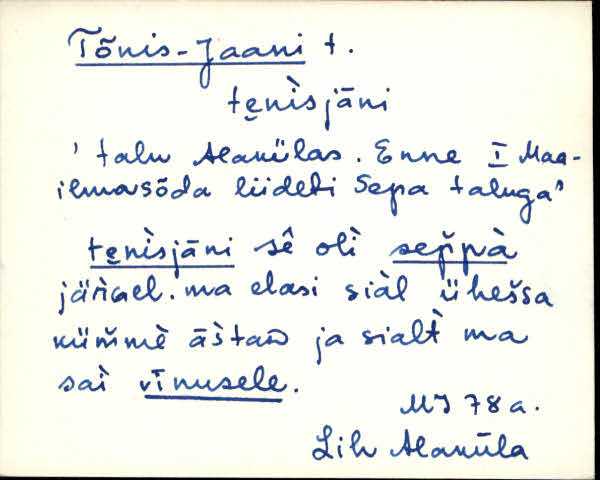 Tõnis-Jaani t.
te̮nìsjāni
' talu Alakülas. Enne I Maa-
ilmasõda liideti Sepa taluga'
te̮nìsjāni sê olì sep̆pà
järàel. ma elasi siàl ühes̆sa
küm̆mè ās̀taD ja sialt̀ ma
saì vīnusele.
MJ 78a.
Lih Alaküla